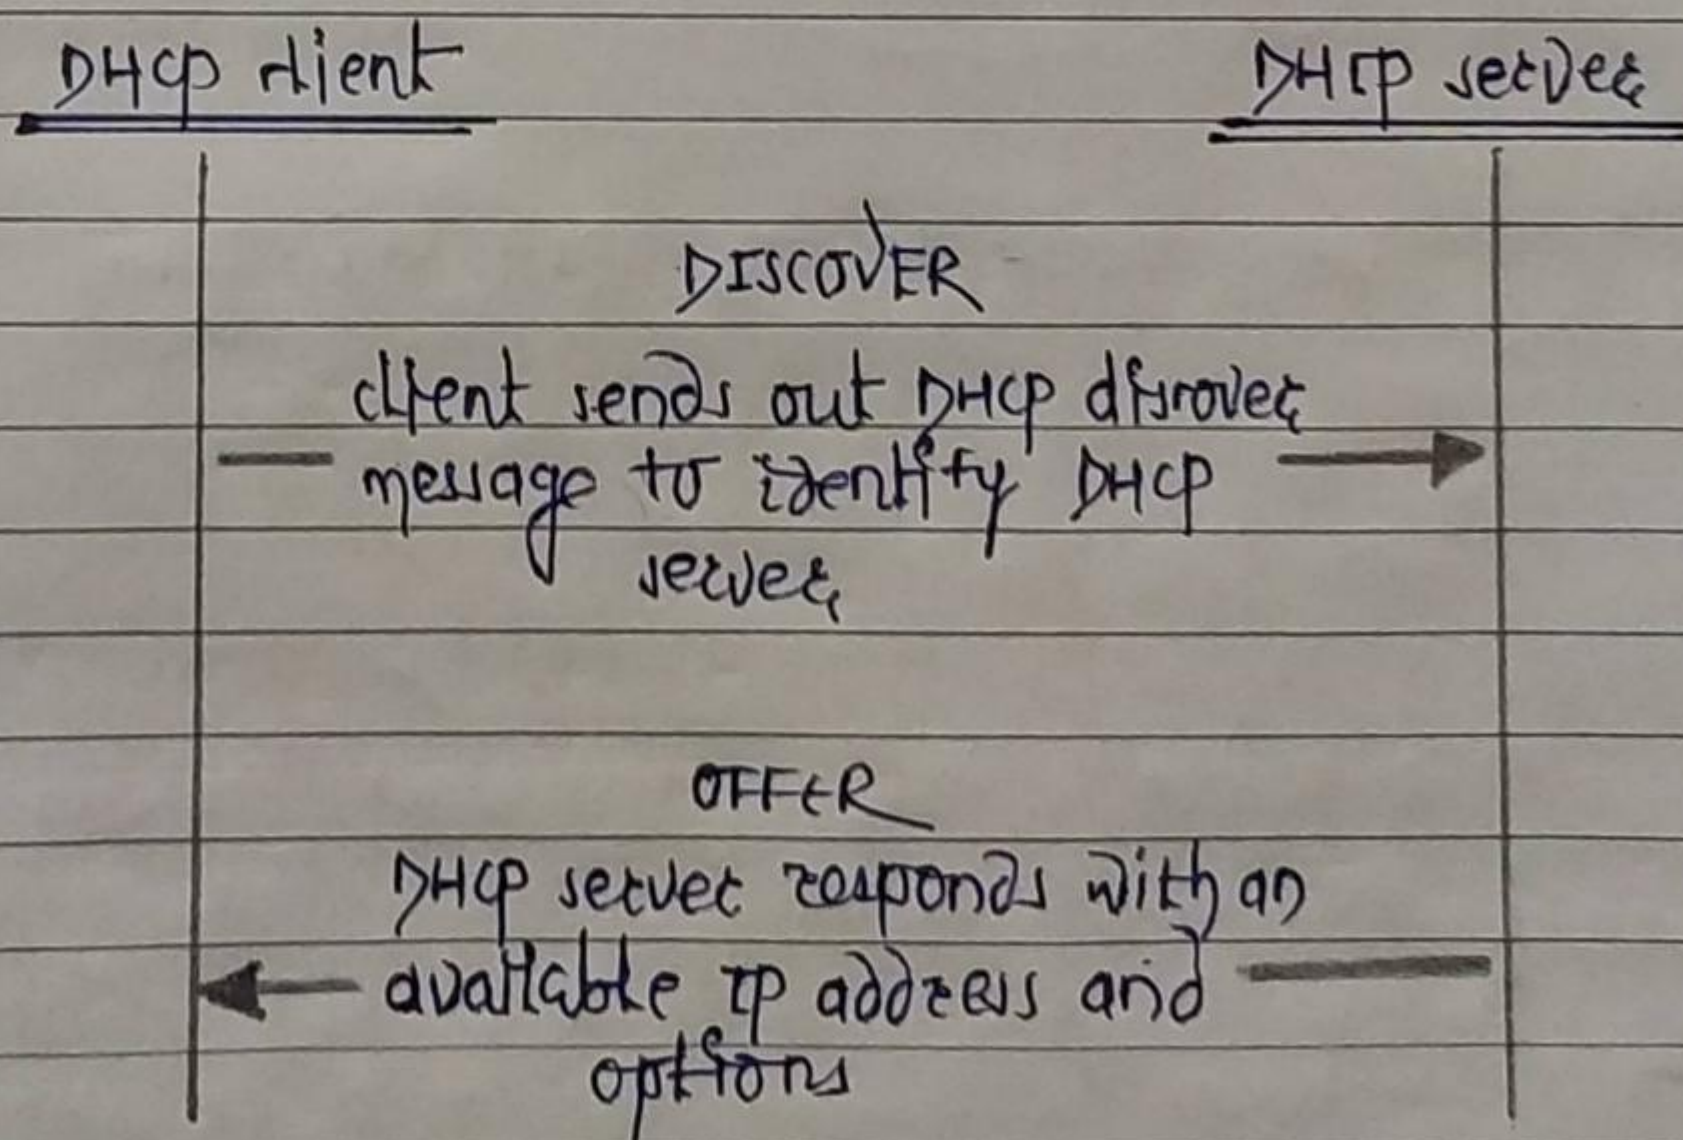 DHCP client
DHCP server
DISCOVER
client sends out DHCP discover
message to identify DHCP
server
OFFER
DHCP server responds with an
available IP address and
options